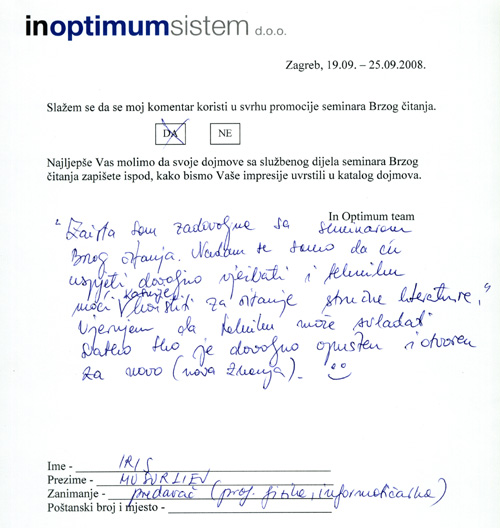 inoptimumsistem d.o.o.
Zagreb, 19.09. – 25.09.2008.
Slažem se da se moj komentar koristi u svrhu promocije seminara Brzog čitanja.
DA NE
Najljepše Vas molimo da svoje dojmove sa službenog dijela seminara Brzog
čitanja zapišete ispod, kako bismo Vaše impresije uvrstili u katalog dojmova.
In Optimum team
"Zaista sam zadovoljna sa seminarom
Brzog čitanja. Nadam se samo da ću
uspjeti dovoljno vježbati i tehniku
moći i kasnije koristiti za čitanje stručne literature,"
Vjerujem da tehniku može svladati
svatko tko je dovoljno opušten i otvoren
za novo (nova znanja). ☺
Ime - IRIS
Prezime - MUŠURLIEV
Zanimanje - predavač (prof. fizike, informatičarka)
Poštanski broj i mjesto -